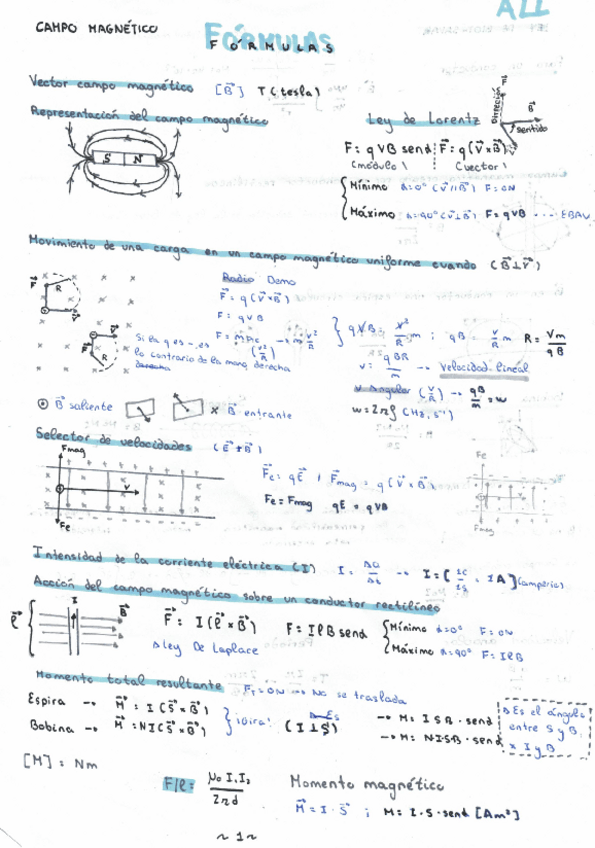 CAMPO MAGNÉTICO
FÓRMULAS
FÓRMULAS
ALL
Vector campo magnético [B⃗] T (tesla)
Representación del campo magnético
S N
Ley de Lorentz
F⃗
Dirección
B⃗
sentido
F = q V B senα ; F⃗ = q (V⃗ × B⃗)
(módulo) (vector)
Mínimo α=0° (V⃗ // B⃗) F = 0N
Máximo α=90° (V⃗ ⊥ B⃗) F = qVB ---- EBAU
Movimiento de una carga en un campo magnético uniforme cuando (B⃗ ⊥ V⃗)
F⃗ R V⃗
Radio Demo
F⃗ = q (V⃗ × B⃗)
F = qVB
F = m ac → m v²/R
(v²/R)
qVB = v²/R m ; qB = v/R m R = Vm/qB
v = qBR/m → Velocidad lineal
v angular (V/R) → qB/m = w
w = 2πf (Hz, s⁻¹)
V⃗ F⃗ R
Si la q es -, es
lo contrario de la mano derecha
derecha
⊙ B⃗ saliente × B⃗ entrante
Selector de velocidades (E⃗ ⊥ B⃗)
Fmag
v
Fe
F⃗e = qE⃗ / F⃗mag = q (V⃗ × B⃗)
Fe = Fmag qE = qVB
Fe
Fmag
Intensidad de la corriente eléctrica (I) I = ΔQ/Δt → I = [1C/1s = 1A] (amperio)
Acción del campo magnético sobre un conductor rectilíneo
ℓ⃗ I B⃗
F⃗ = I (ℓ⃗ × B⃗) F = IℓB senα
Mínimo α=0° F = 0N
Máximo α=90° F = IℓB
Ley De Laplace
Momento total resultante FT = 0N → No se traslada
Espira → M⃗ = I (S⃗ × B⃗)
Bobina → M⃗ = NI (S⃗ × B⃗)
¡Gira! (I ⊥ S⃗)
→ M = I S B · senα
→ M = N·I·S·B · senα
Es el ángulo
entre S y B,
× I y B
[M] = Nm
F/ℓ = μ₀ I₁ I₂ / 2πd
Momento magnético
M⃗ = I · S⃗ ; M = I · S · senα [Am²]
~ 1 ~